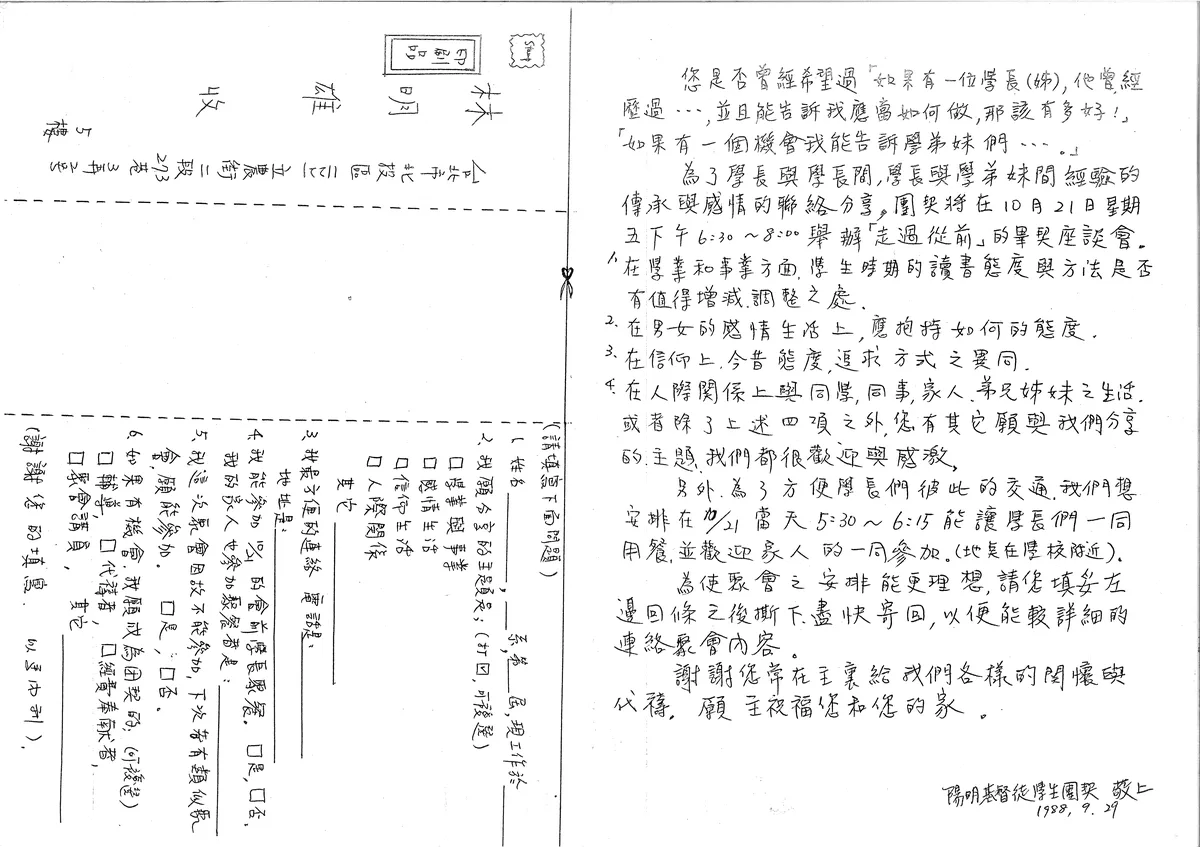 您是否曾經希望過「如果有一位學長(姊),他曾經
歷過…,並且能告訴我應當如何做,那該有多好!」
「如果有一個機會我能告訴學弟妹們…。」
為了學長與學長間,學長與學弟妹間經驗的
傳承與感情的聯絡分享,團契將在10月21日星期
五下午6:30~8:00舉辦「走過從前」的畢契座談會。
1. 在學業和事業方面,學生時期的讀書態度與方法是否
有值得增減.調整之處.
2. 在男女的感情生活上,應抱持如何的態度.
3. 在信仰上.今昔態度,追求方式之異同.
4. 在人際關係上與同學,同事,家人.弟兄姊妹之生活.
或者除了上述四項之外,您有其它願與我們分享
的主題.我們都很歡迎與感激。
另外.為了方便學長們彼此的交通.我們想
安排在10/21當天5:30~6:15能讓學長們一同
用餐,並歡迎家人的一同參加。(地點在學校附近)。
為使聚會之安排能更理想,請您填妥左
邊回條之後撕下.盡快寄回,以便能較詳細的
連絡聚會內容。
謝謝您常在主裏給我們各樣的關懷與
代禱。願主祝福您和您的家。
陽明基督徒學生團契 敬上
1988, 9. 29
Stamp
印刷品
台北市北投區 立農街二段273巷3弄2號
5樓
林明雄 收
(請填寫下面問題)
1. 姓名 , 系第 屆,現工作於
2. 我願分享的主題是:(打☑,可複選)
□學業與事業
□感情生活
□信仰生活
□人際關係
其它
3. 我最方便的連絡 電話是:
地址是:
4. 我能參加10/21的會前學長聚餐。□是,□否。
我的家人也參加聚餐者是:
5. 我這次聚會因故不能參加,下次若有類似聚
會,願能參加。□是;□否。
6. 如果有機會.我願成為團契的:(可複選)
□輔導,□代禱者,□經費奉獻者,
□聚會講員, 其它
(謝謝您的填寫. 以馬內利).